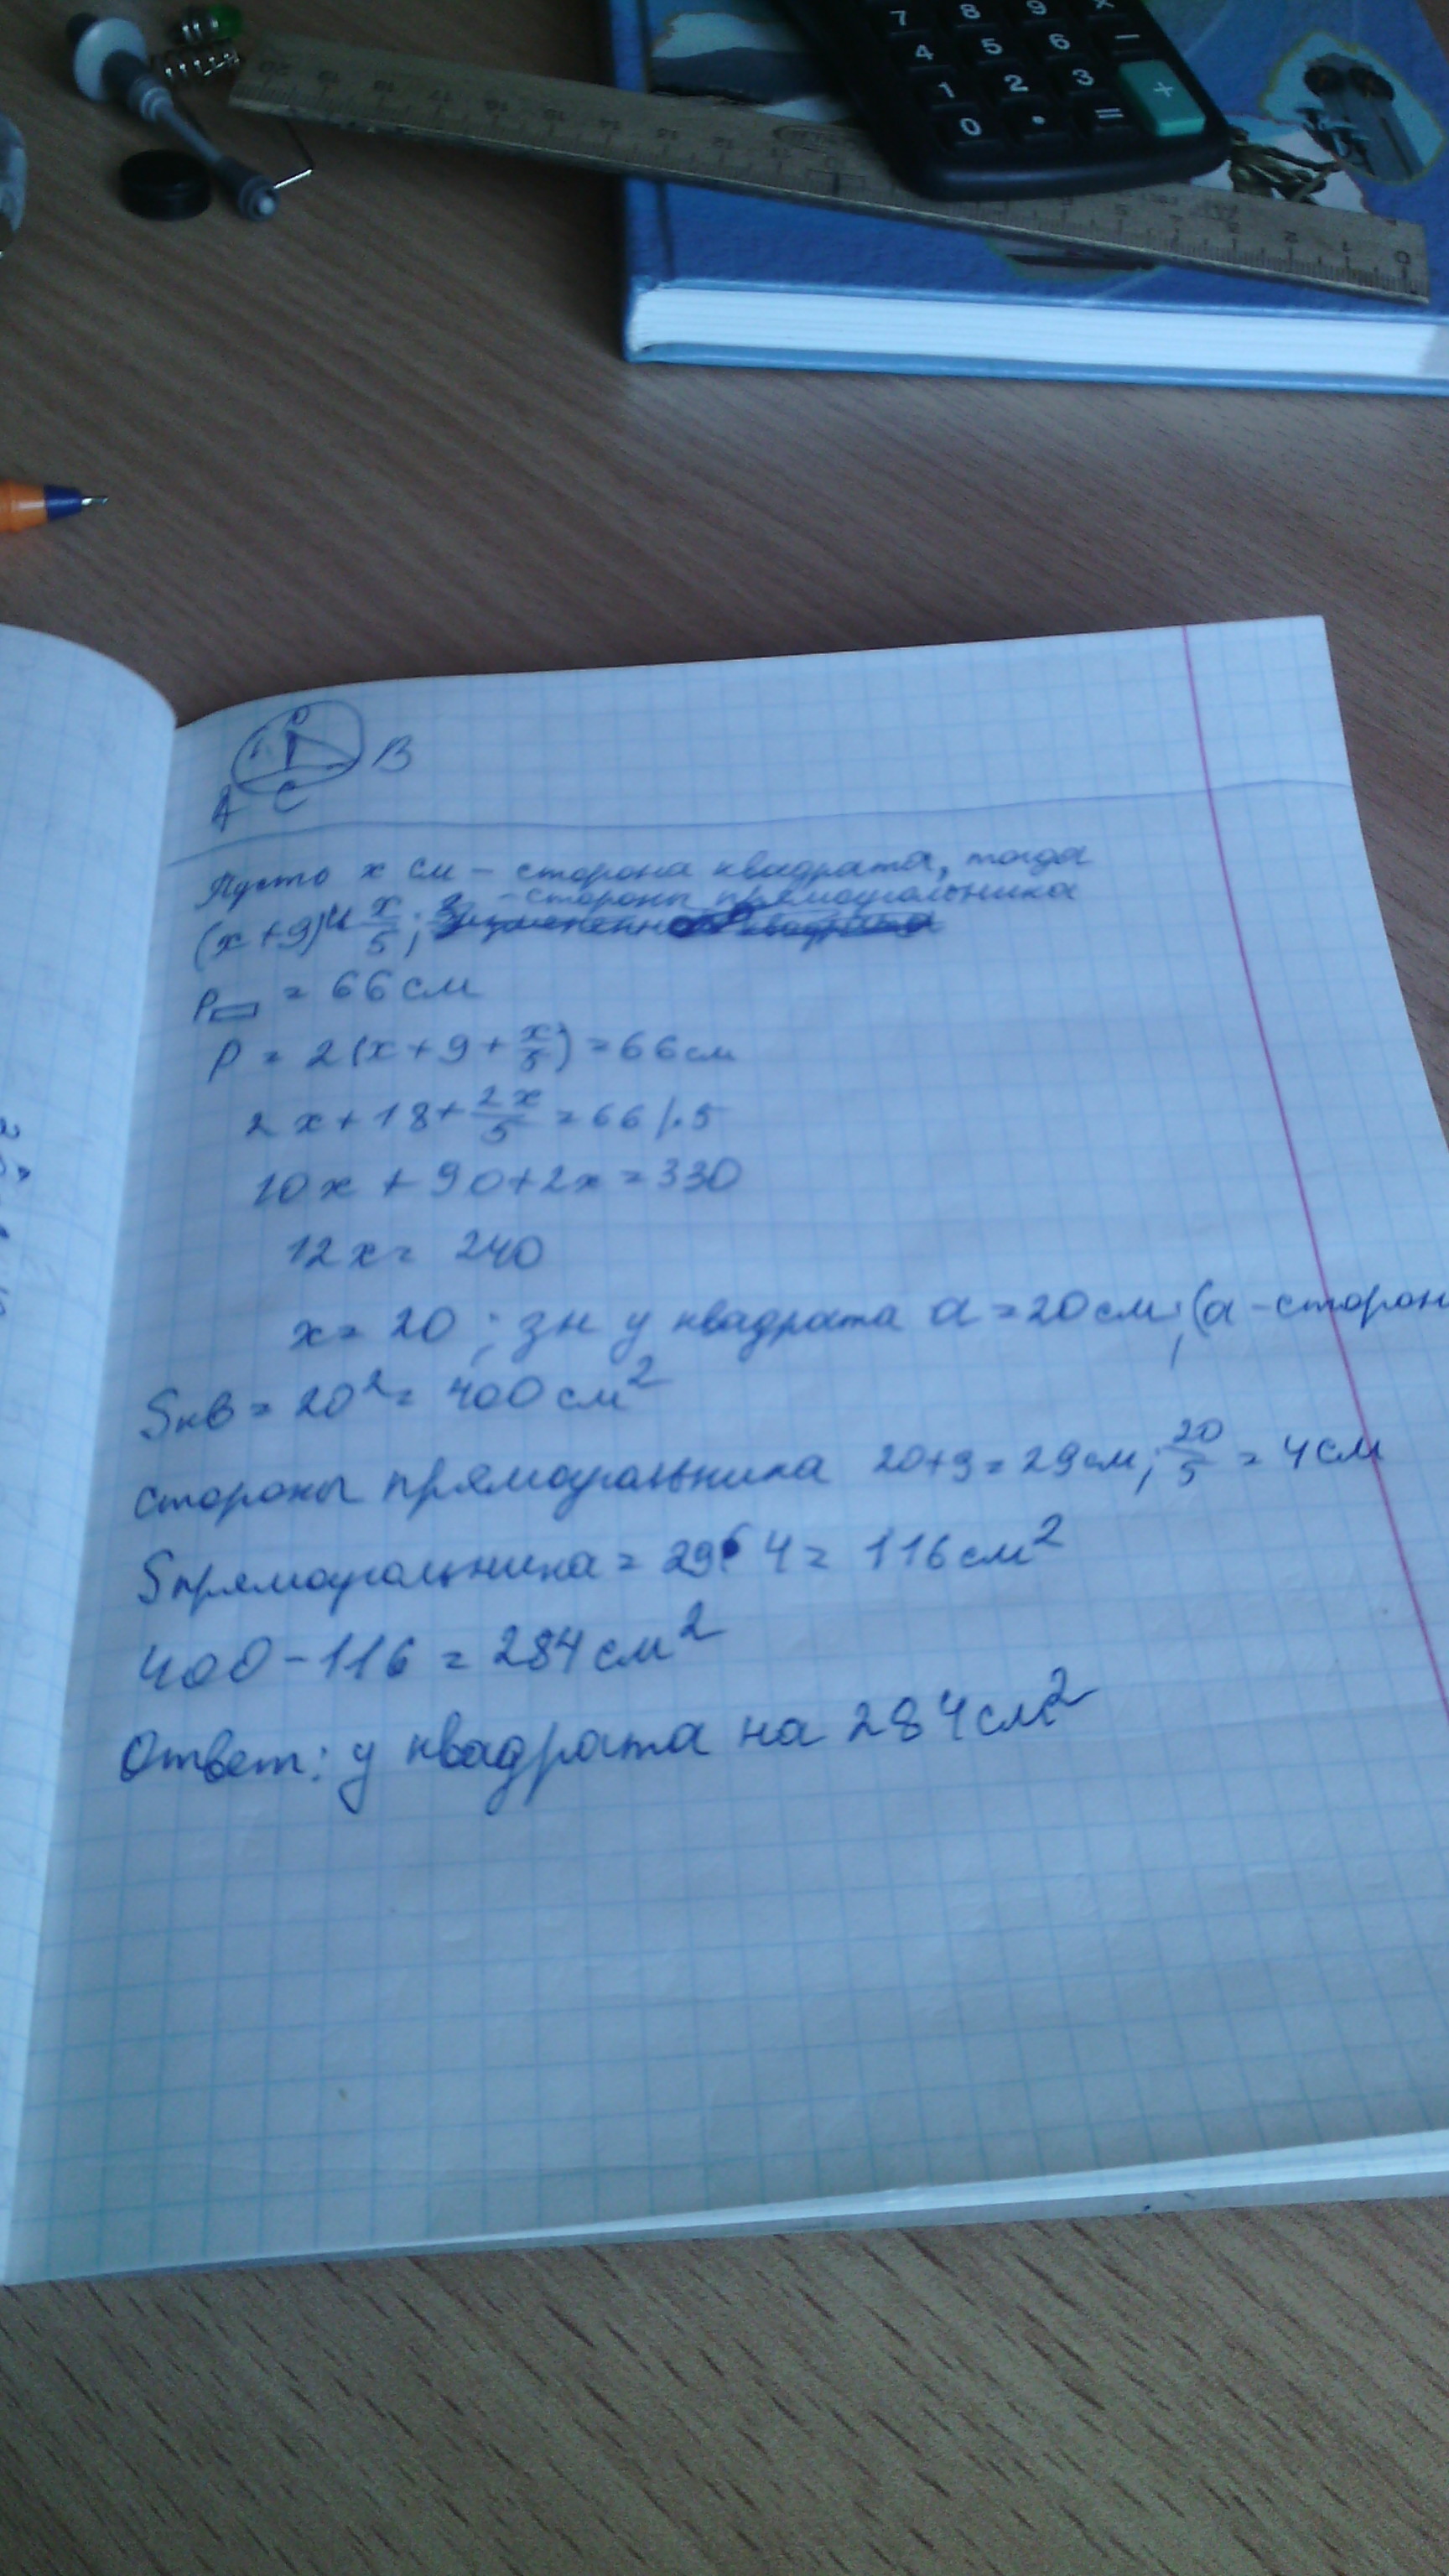 7 8 9 ×
4 5 6 −
1 2 3 +
0 . =
20 19 18 17 16 15 14 13 12
2 1 0
O
B
A C
Пусто x см – сторона квадрата, тогда
(x+9) и x/5; - стороны прямоугольника
P▭ = 66 см
P = 2(x+9+x/5) = 66 см
2x+18+2x/5=66 |·5
10x+90+2x=330
12x= 240
x= 20 ; зн у квадрата a=20 см; (a-сторон
Sкв = 20²= 400 см²
стороны прямоугольника 20+9=29 см; 20/5 = 4 см
Sпрямоугольника = 29·4= 116 см²
400-116 = 284 см²
Ответ: у квадрата на 284 см²